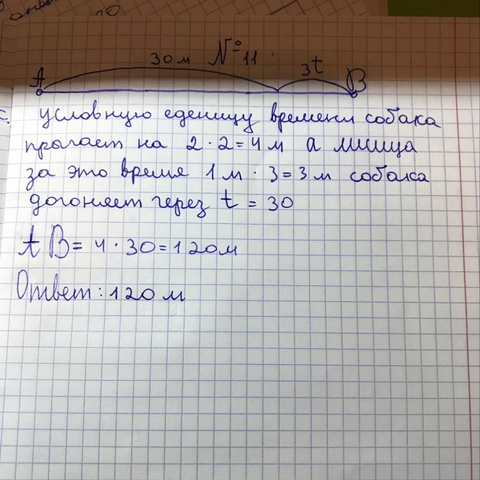 30 м № 11
3t
A B
с. условную еденицу времени собака
прыгает на 2 · 2 = 4 м а лисица
за это время 1 м · 3 = 3 м собака
догоняет через t = 30
AB = 4 · 30 = 120м
Ответ: 120 м